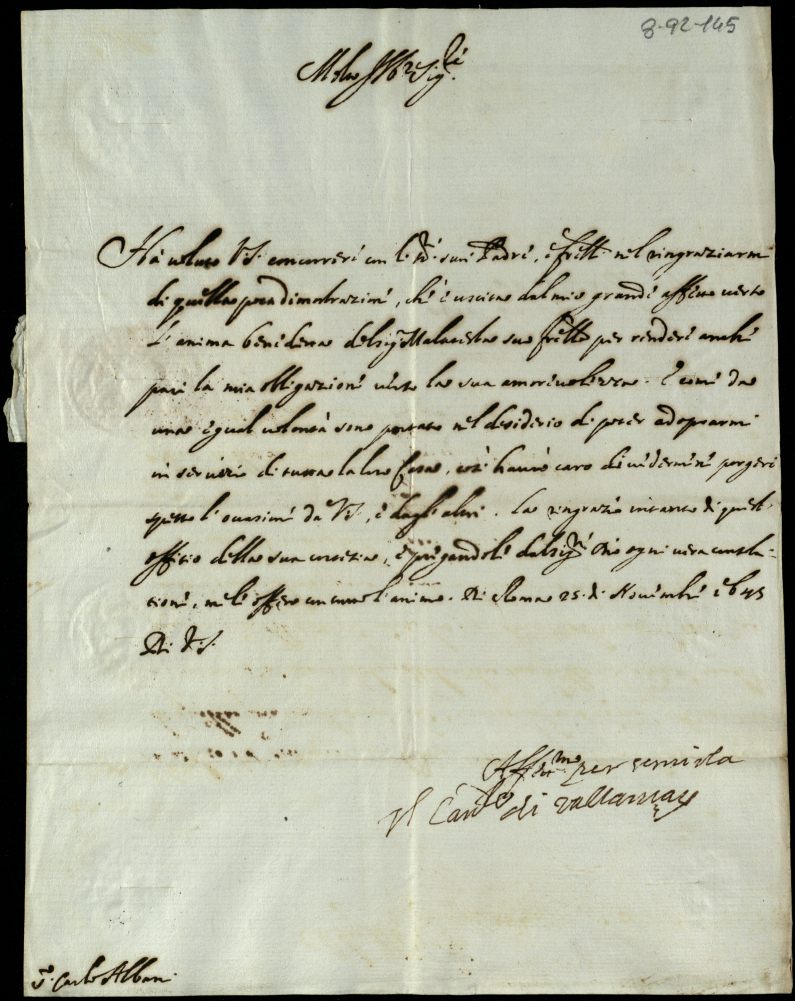 8-92-145
Molto Ill.re Sig.re
Hà voluto V.S. concorrere con li SS.ri suoi Padre, e frēlli nel ringraziarmi
di quella poca dimostrazione, che è uscita dal mio grande affetto verso
l'anima benedetta del sig.r Malatesta suo frēllo per rendere anche
pari la mia obligazione verso la sua amorevolezza. E come da
una egual volontà sono portato nel desiderio di poter adoprarmi
in servizio di tutta la loro Casa, così haverò caro di vedermene porgere
spesso l'occasioni da V.S., e dagl'altri. La ringrazio intanto di quest'
offitio della sua cortesia, e pregandole dal sig.re Dio ogni vera consola-
tione, me l'offero con tutto l'animo. Di Roma 25. di Novembre 1645
Di V.S.
Aff.mo per servirla
Il Card.le di
S.r Carlo Albani